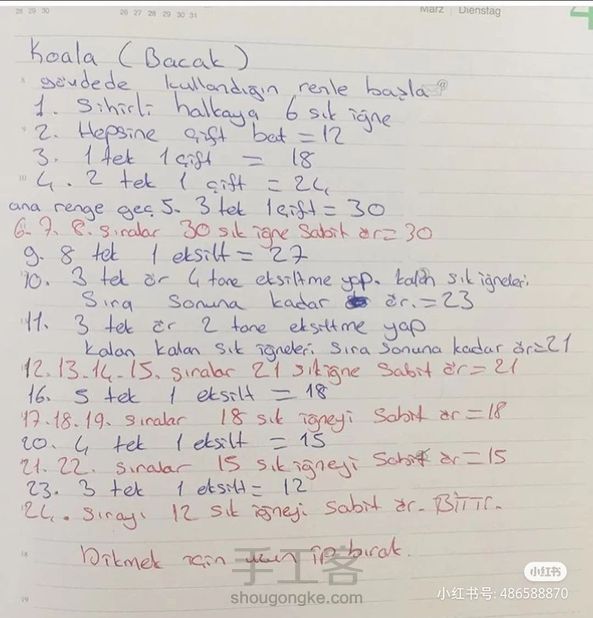 28 29 30
26 27 28 29 30 31
März | Dienstag
4
Koala (Bacak)
gövdede kullandığın renle başla
1. Sihirli halkaya 6 sık iğne
2. Hepsine çift bat = 12
3. 1 tek 1 çift = 18
4. 2 tek 1 çift = 24
ana renge geç 5. 3 tek 1 çift = 30
6. 7. 8. sıralar 30 sık iğne sabit ör = 30
9. 8 tek 1 eksilt = 27
10. 3 tek ör 4 tane eksiltme yap. kalan sık iğneleri
Sıra sonuna kadar ör. = 23
11. 3 tek ör 2 tane eksiltme yap
kalan kalan sık iğneleri sıra sonuna kadar ör = 21
12. 13. 14. 15. sıralar 21 sık iğne sabit ör = 21
16. 5 tek 1 eksilt = 18
17. 18. 19. sıralar 18 sık iğneyi sabit ör = 18
20. 4 tek 1 eksilt = 15
21. 22. sıralar 15 sık iğneyi sabit ör = 15
23. 3 tek 1 eksilt = 12
24. sırayı 12 sık iğneyi sabit ör. BİTTİ.
Dikmek için uzun ip bırak.
手工客
shougongke.com
小红书
小红书号: 486588870